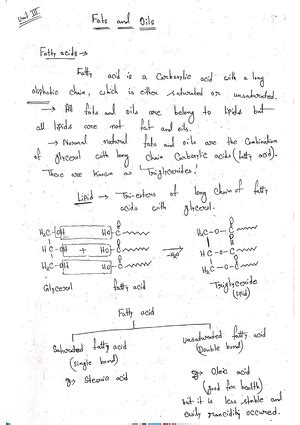 Unit III
Fats and Oils
Fatty acids →
Fatty acid is a Carboxylic acid with a long
aliphatic chain, which is either saturated or unsaturated.
→ All fats and oils are belong to lipids but
all lipids are not fat and oils.
→ Normal natural fats and oils are the Combination
of glycerol with long chain Carboxylic acids (fatty acid).
These are known as 'Triglycerides'.
Lipid → Tri-esters of long chain of fatty
acids with glycerol.
H₂C-OH HO-C
HC-OH + HO-C
H₂C-OH HO-C
-H₂O
H₂C-O-C
HC-O-C
H₂C-O-C
Glycerol fatty acid
Triglyceride
(Lipid)
Fatty acid
Saturated fatty acid
(single bond)
eg → Stearic acid
unsaturated fatty acid
(Double bond)
eg → Oleic acid
(good for health)
but it is less stable and
easily rancidity occurred.